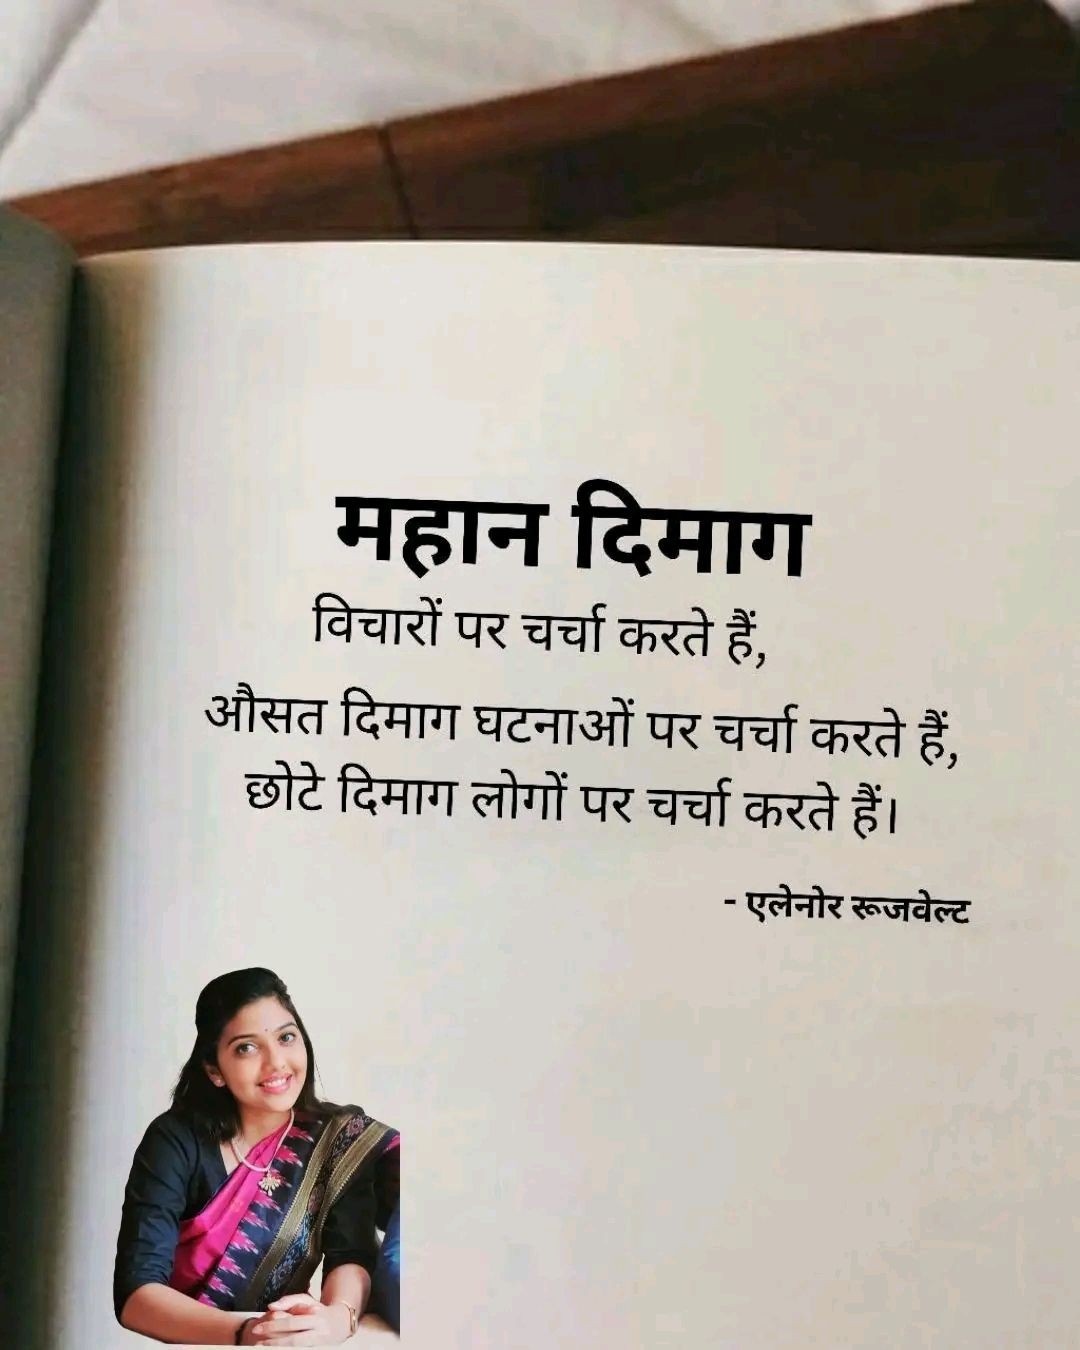 महान दिमाग
विचारों पर चर्चा करते हैं,
औसत दिमाग घटनाओं पर चर्चा करते हैं,
छोटे दिमाग लोगों पर चर्चा करते हैं।
- एलेनोर रूजवेल्ट